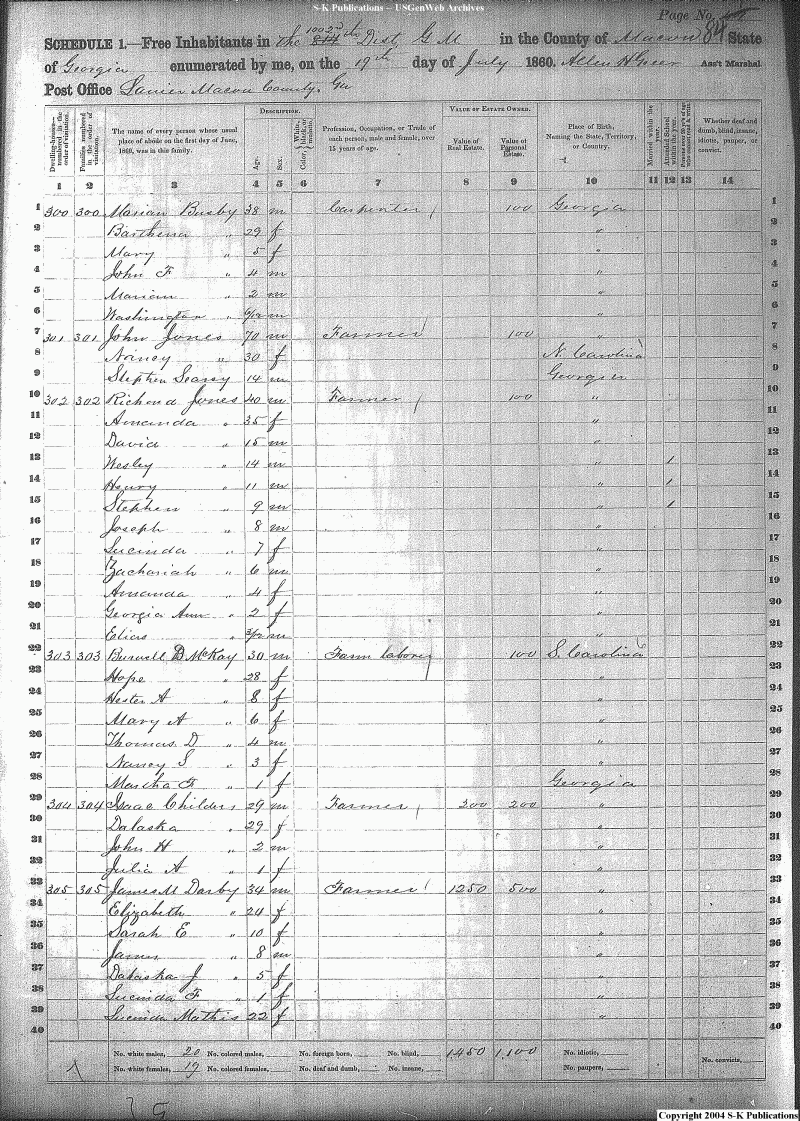 S-K Publications – USGenWeb Archives
Page No. 84
SCHEDULE 1.—Free Inhabitants in the 1002d Dist, G M in the County of Macon State
of Georgia enumerated by me, on the 19th day of July 1860. Allen H Greer Ass't Marshal
Post Office Lanier Macon County, Ga
DESCRIPTION. VALUE OF ESTATE OWNED.
Dwelling-houses—numbered in the order of visitation. Families numbered in the order of visitation. The name of every person whose usual place of abode on the first day of June, 1860, was in this family. Age. Sex. Color, White, black, or mulatto. Profession, Occupation, or Trade of each person, male and female, over 15 years of age. Value of Real Estate. Value of Personal Estate. Place of Birth, Naming the State, Territory, or Country. Married within the year. Attended School within the year. Persons over 20 y'rs of age who cannot read & write. Whether deaf and dumb, blind, insane, idiotic, pauper, or convict.
1 2 3 4 5 6 7 8 9 10 11 12 13 14
1 300 300 Marian Busby 38 m Carpenter 100 Georgia 1
2 Barthena " 29 f " 2
3 Mary " 5 f " 3
4 John F " 4 m " 4
5 Marian " 2 m " 5
6 Washington " 6/12 m " 6
7 301 301 John Jones 70 m Farmer 100 " 7
8 Nancy " 30 f N. Carolina 8
9 Stephen Searsy 14 m Georgia 9
10 302 302 Richard Jones 40 m Farmer 100 " 10
11 Amanda " 35 f " 11
12 David " 15 m " 12
13 Wesley " 14 m " 1 13
14 Henry " 11 m " 1 14
15 Stephen " 9 m " 1 15
16 Joseph " 8 m " 16
17 Lucinda " 7 f " 17
18 Zachariah " 6 m " 18
19 Amanda " 4 f " 19
20 Georgia Ann " 2 f " 20
21 Elias " 3/12 m " 21
22 303 303 Burwell D McKay 30 m Farm laborer 100 S. Carolina 22
23 Hope " 28 f " 23
24 Hester A " 8 f " 24
25 Mary A " 6 f " 25
26 Thomas D " 4 m " 26
27 Nancy S " 3 f " 27
28 Martha F " 1 f Georgia 28
29 304 304 Isaac Childers 29 m Farmer 200 200 " 29
30 Dalaska " 29 f " 30
31 John H " 2 m " 31
32 Julia A " 1 f " 32
33 305 305 James M Darby 34 m Farmer 1250 500 " 33
34 Elizabeth " 24 f " 34
35 Sarah E " 10 f " 35
36 James " 8 m " 36
37 Dalaska J " 5 f " 37
38 Lucinda F " 1 f " 38
39 Lucinda Mathis 22 f " 39
40 40
No. white males, 20 No. colored males, No. foreign born, No. blind, 1450 1,100 No. idiotic, No. convicts,
No. white females, 19 No. colored females, No. deaf and dumb, No. insane, No. paupers,
Copyright 2004 S-K Publications